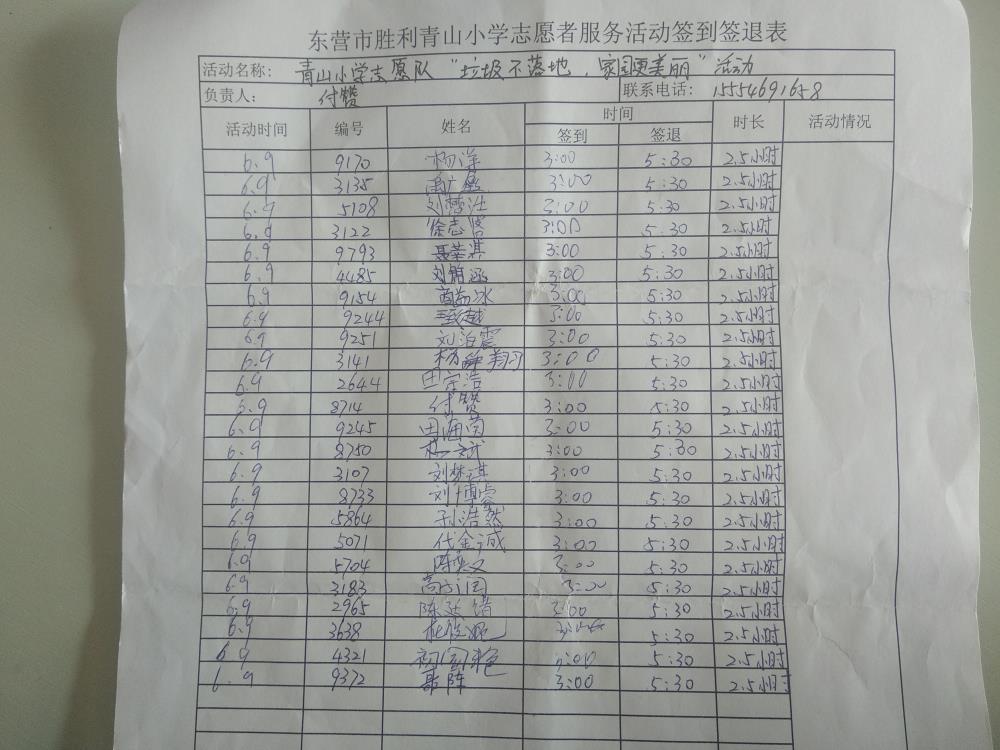 东营市胜利青山小学志愿者服务活动签到签退表
活动名称： 青山小学志愿队“垃圾不落地，家园更美丽”活动
负责人： 付赞 联系电话： 15554691658
活动时间 编号 姓名 时间 时长 活动情况
签到 签退
6.9 9170 杨洋 3:00 5:30 2.5小时
6.9 3135 3:00 5:30 2.5小时
6.9 5108 3:00 5:30 2.5小时
6.9 3122 3:00 5:30 2.5小时
6.9 9793 3:00 5:30 2.5小时
6.9 4485 3:00 5:30 2.5小时
6.9 9154 3:00 5:30 2.5小时
6.9 9244 3:00 5:30 2.5小时
6.9 9251 刘泊震 3:00 5:30 2.5小时
6.9 3141 3:00 5:30 2.5小时
6.9 2644 田宗浩 3:00 5:30 2.5小时
6.9 8714 付赞 3:00 5:30 2.5小时
6.9 9245 田海菊 3:00 5:30 2.5小时
6.9 8750 3:00 5:30 2.5小时
6.9 3107 刘梦淇 3:00 5:30 2.5小时
6.9 8733 刘博睿 3:00 5:30 2.5小时
6.9 5864 孙浩然 3:00 5:30 2.5小时
6.9 5071 代金诚 3:00 5:30 2.5小时
6.9 5704 3:00 5:30 2.5小时
6.9 3183 3:00 5:30 2.5小时
6.9 2965 3:00 5:30 2.5小时
6.9 3638 5:30 2.5小时
6.9 4321 3:00 5:30 2.5小时
6.9 9372 聂阵 3:00 5:30 2.5小时